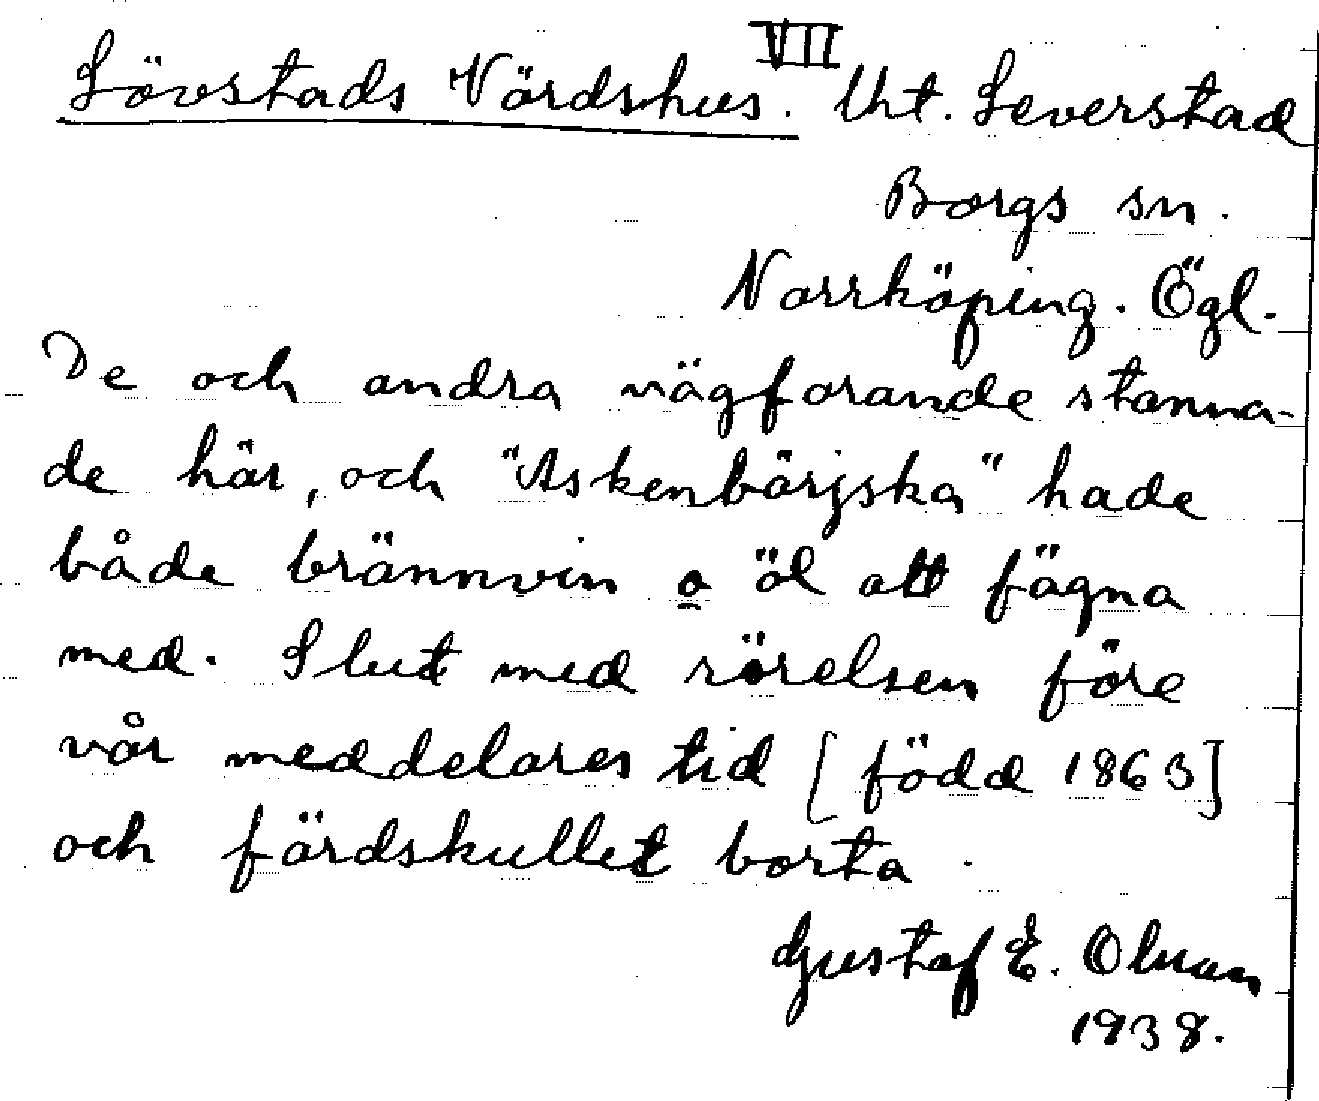 VII
Lövstads Värdshus. Uht. Leverstad
Borgs sn.
Norrköping. Ögl.
De och andra vägfarande stanna-
de här, och "Askenbärjska" hade
både brännvin o öl att fägna
med. Slut med rörelsen före
vår meddelares tid [född 1863]
och färdskullet borta.
Gustaf E. Olman
1938.